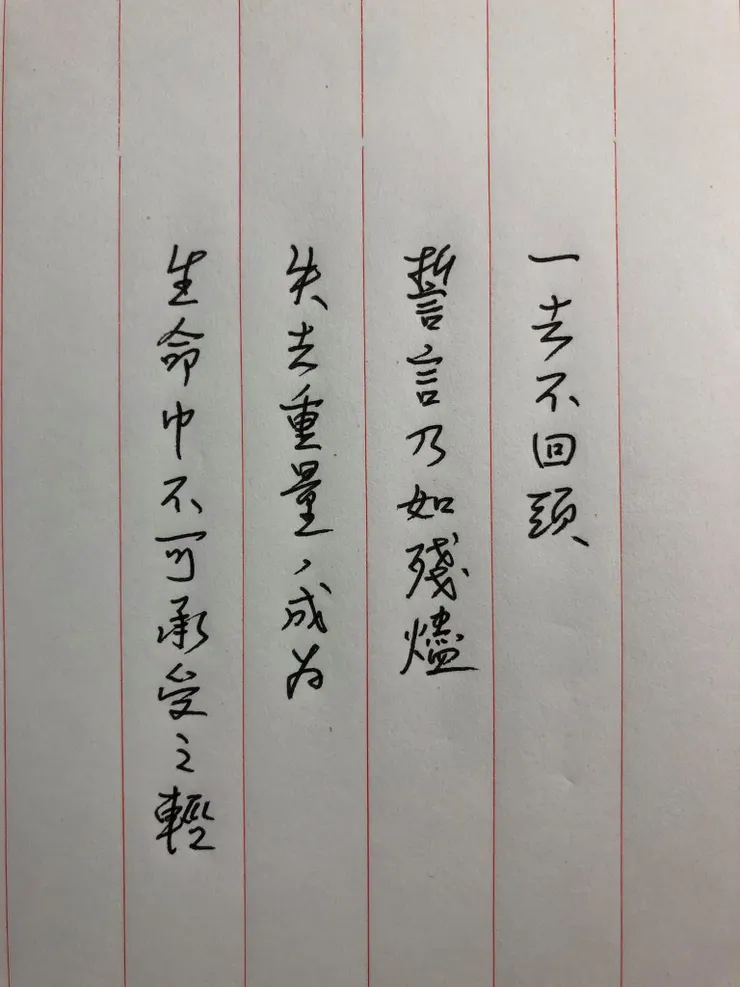 一去不回頭
誓言乃如殘燼
失去重量，成为
生命中不可承受之輕